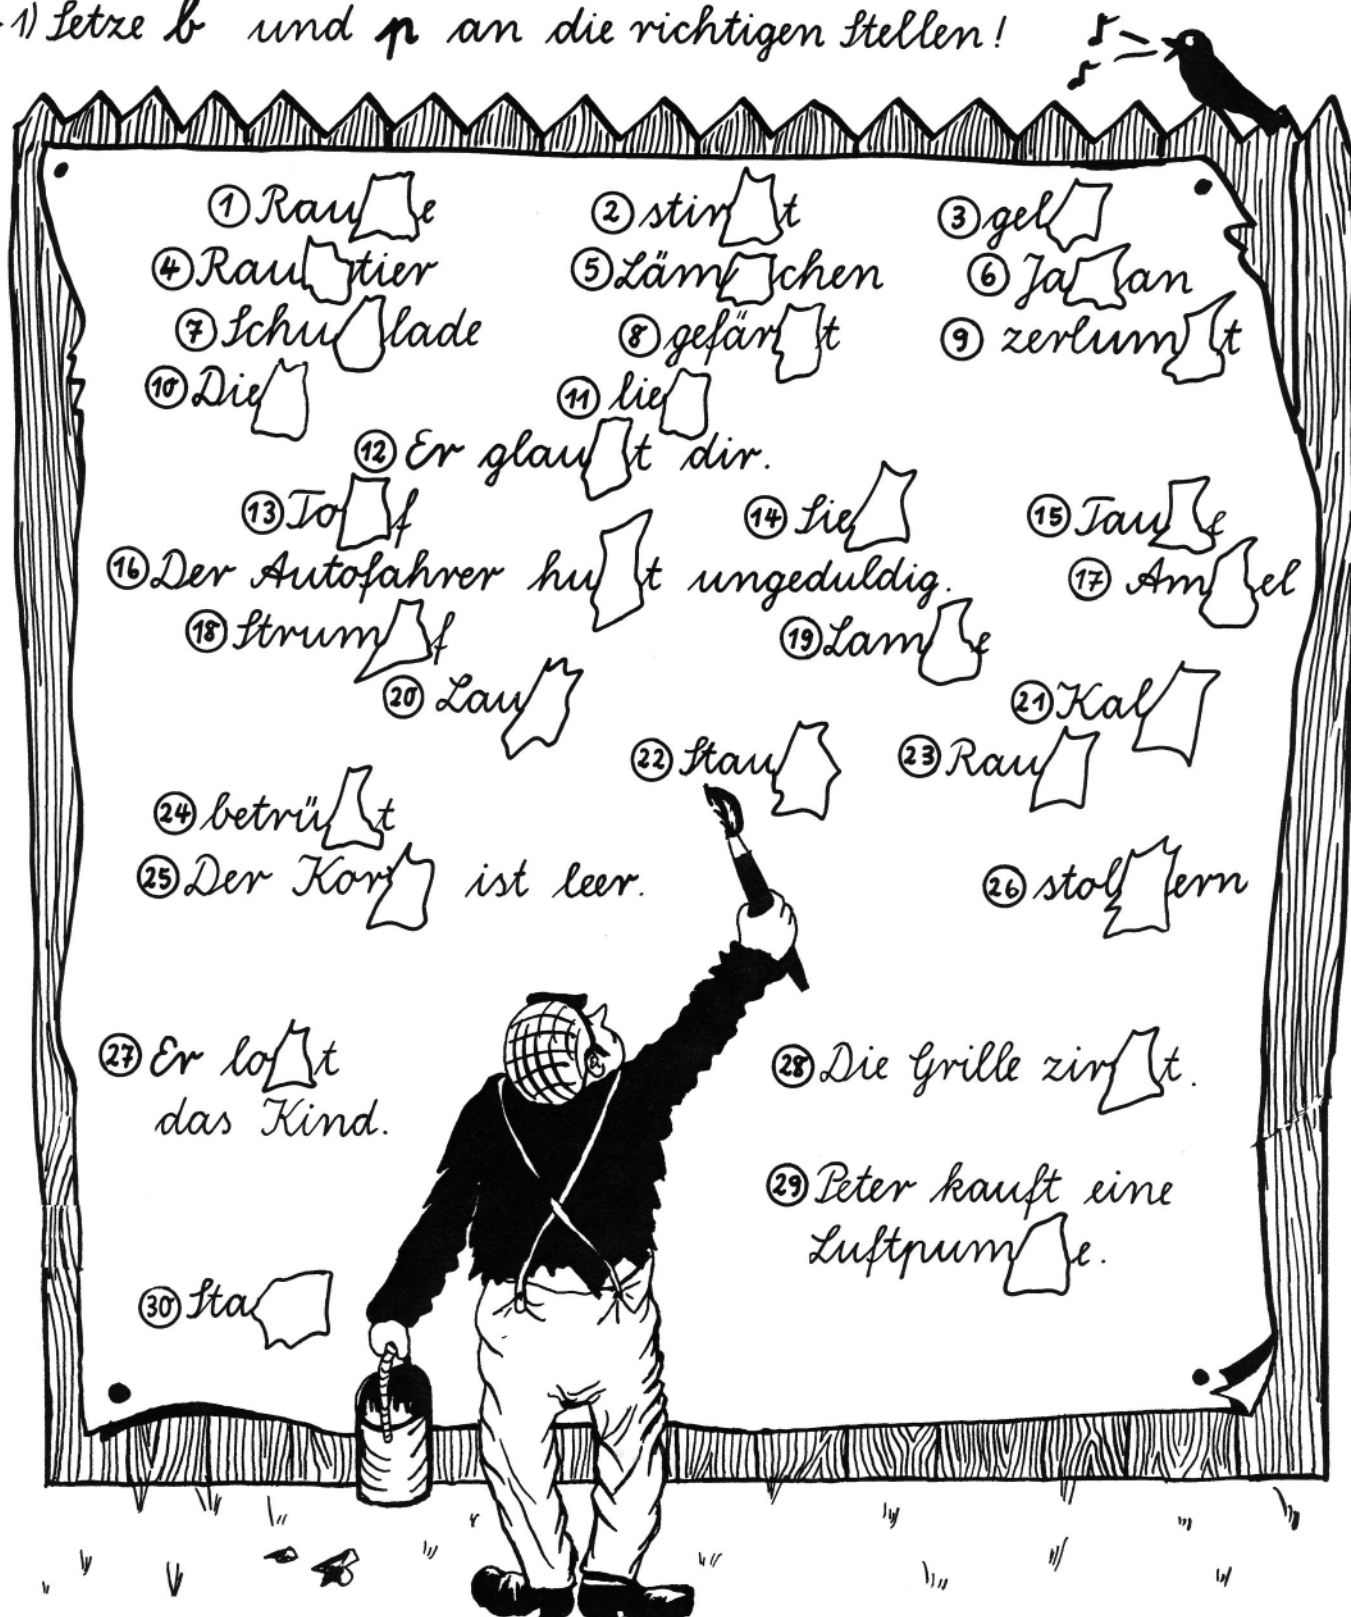 1) Setze b und p an die richtigen Stellen!
① Rau e ② stir t ③ gel
④ Rau tier ⑤ Läm chen ⑥ Ja an
⑦ Schu lade ⑧ gefär t ⑨ zerlum t
⑩ Die ⑪ lie
⑫ Er glau t dir.
⑬ To f ⑭ Sie ⑮ Tau e
⑯ Der Autofahrer hu t ungeduldig. ⑰ Am el
⑱ Strum f ⑲ Lam e
⑳ Lau ㉑ Kal
㉒ Stau ㉓ Rau
㉔ betrü t
㉕ Der Kor ist leer. ㉖ stol ern
㉗ Er lo t
das Kind.
㉘ Die Grille zir t.
㉙ Peter kauft eine
Luftpum e.
㉚ Sta